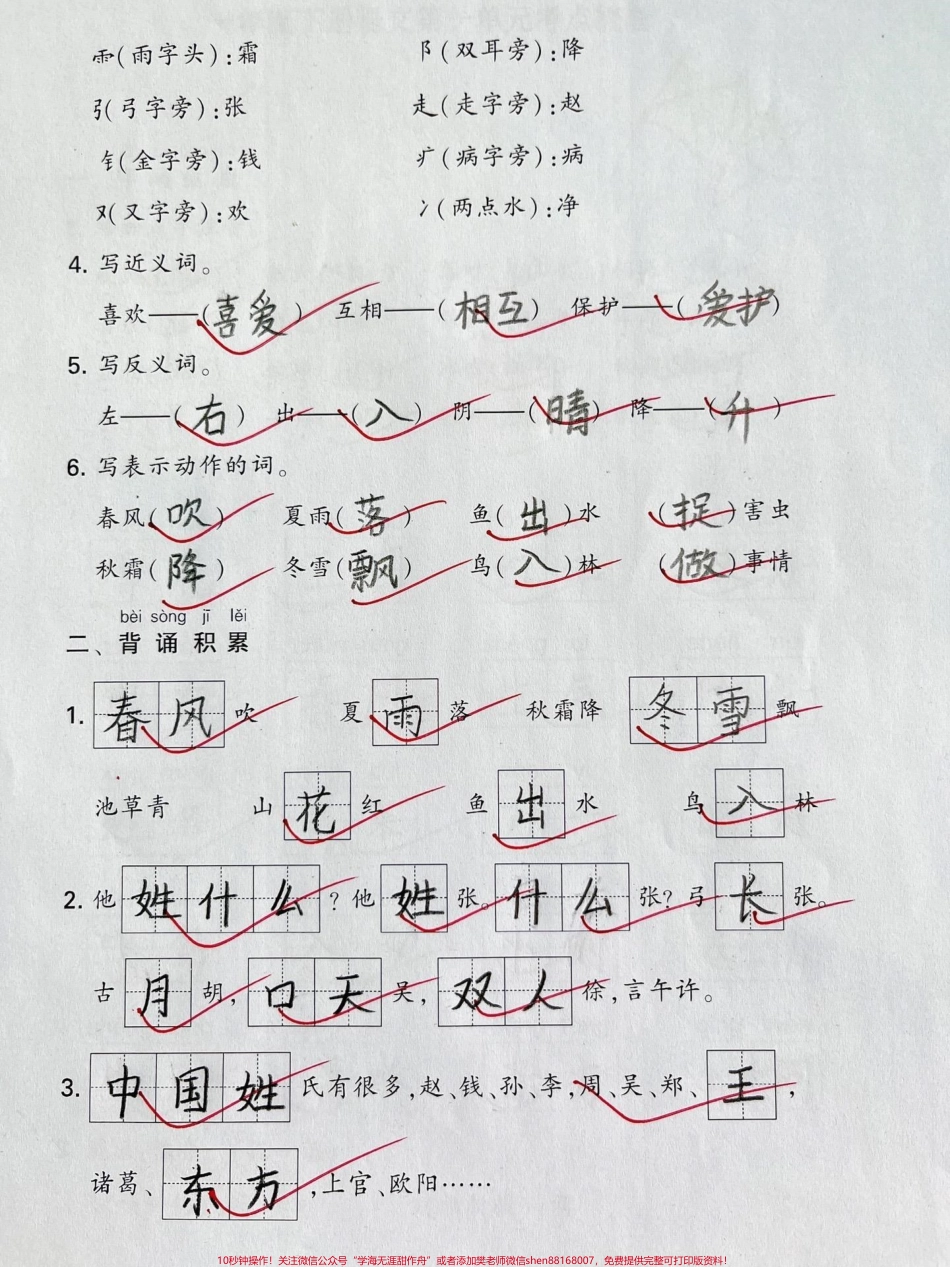 ⻗(雨字头):霜 阝(双耳旁):降
弓(弓字旁):张 走(走字旁):赵
钅(金字旁):钱 疒(病字旁):病
又(又字旁):欢 冫(两点水):净
4. 写近义词。
喜欢——(喜爱) 互相——(相互) 保护——(爱护)
5. 写反义词。
左——(右) 出——(入) 阴——(晴) 降——(升)
6. 写表示动作的词。
春风(吹) 夏雨(落) 鱼(出)水 (捉)害虫
秋霜(降) 冬雪(飘) 鸟(入)林 (做)事情
bèi sòng jī lěi
二、背诵积累
1. 春风吹 夏雨落 秋霜降 冬雪飘
池草青 山花红 鱼出水 鸟入林
2. 他姓什么?他姓张。什么张?弓长张。
古月胡,口天吴,双人徐,言午许。
3. 中国姓氏有很多,赵、钱、孙、李,周、吴、郑、王,
诸葛、东方,上官、欧阳……
10秒钟操作!关注微信公众号“学海无涯甜作舟”或者添加樊老师微信shen88168007,免费提供完整可打印版资料!